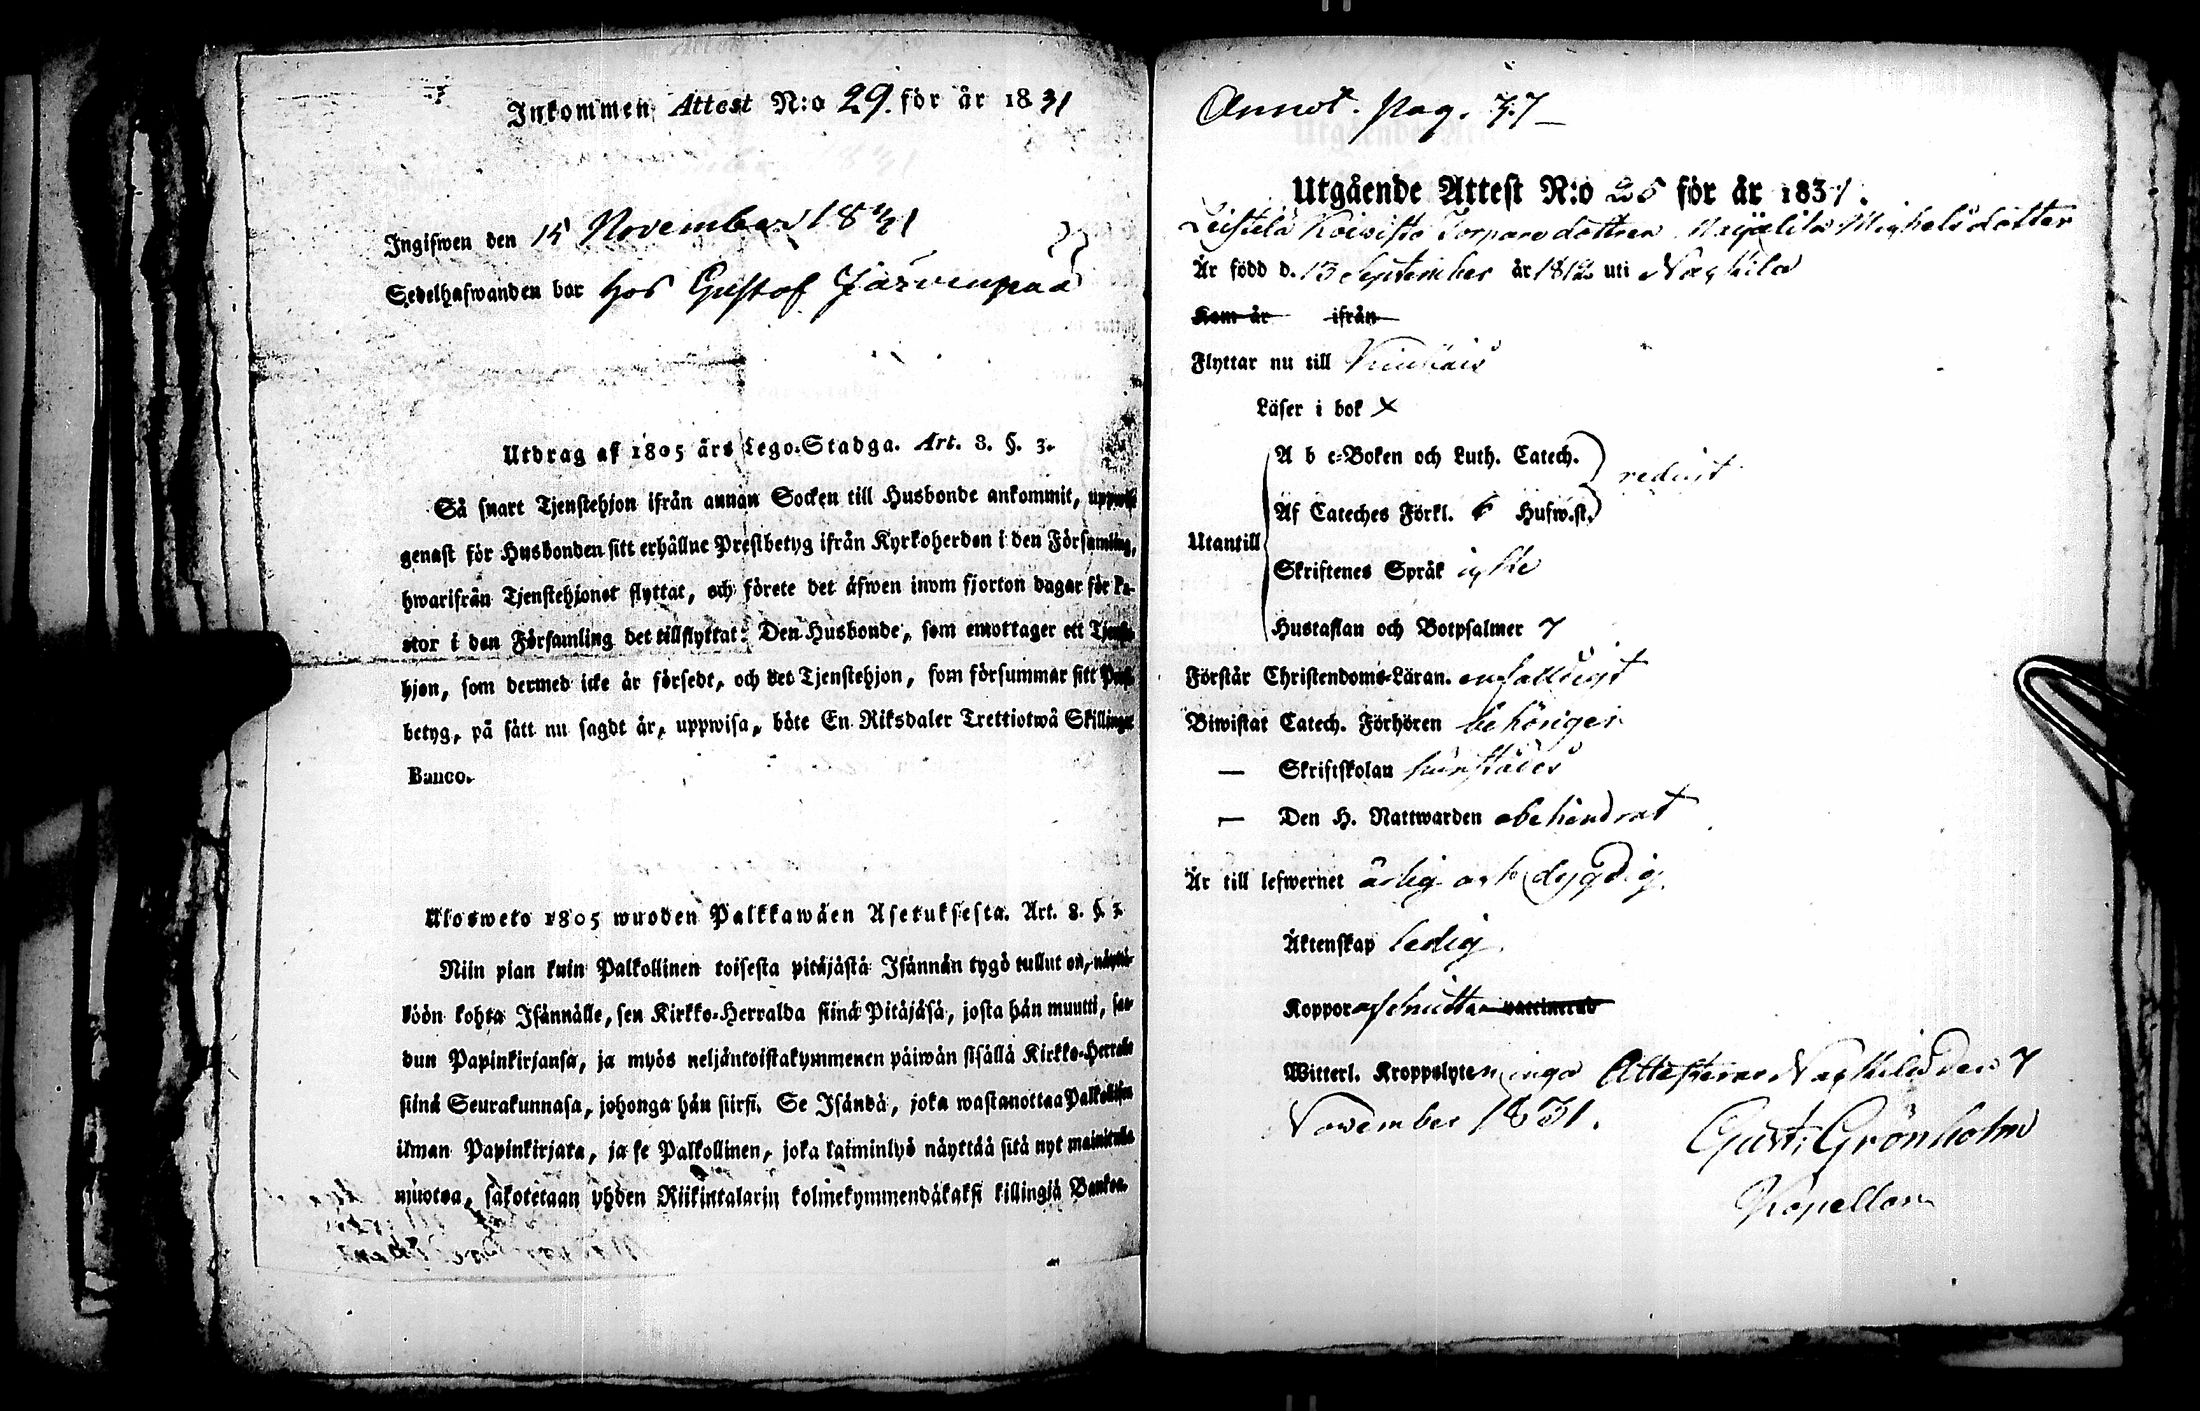 Inkommen Attest N:o 29. för år 1831
Ingifwen den 15 November 1831
Sedelhafwanden bor hos Gustof Järvenpää
Utdrag af 1805 års Lego-Stadga. Art. 8. §. 3.
Så snart Tjenstehjon ifrån annan Socken till Husbonde ankommit,
genast för Husbonden sitt erhållne Prestbetyg ifrån Kyrkoherden i den Församling,
hwarifrån Tjenstehjonet flyttat, och förete det äfwen inom fjorton dagar för Pa-
stor i den Församling det tillflyttat. Den Husbonde, som emottager ett Tjenste-
hjon, som dermed icke är försedt, och det Tjenstehjon, som försummar sitt
betyg, på sätt nu sagdt är, uppwisa, böte En Riksdaler Trettiotwå Skillingar
Banco.
Ulosweto 1805 wuoden Palkkawäen Asetuksesta. Art. 8. §. 3.
Niin pian kuin Palkollinen toisesta pitäjästä Isännän tygö tullut on, näyttä-
köön kohta Isännälle, sen Kirkko-Herralda siinä Pitäjäsä, josta hän muutti, saa-
dun Papinkirjansa, ja myös neljäntoistakymmenen päiwän sisällä Kirkko-Herralle
siinä Seurakunnasa, johonga hän siirsi. Se Isändä, joka wastanottaa Palkollisen
ilman Papinkirjata, ja se Palkollinen, joka laiminlyö näyttää sitä nyt mainitulla
muotoa, sakotetaan yhden Riikintalarin kolmekymmendäkaksi killingiä Bankoa.
Annot. Pag. 77
Utgående Attest N:o 25 för år 1831.
Leistilä Koivisto Torpare dottren Michelsdotter
Är född d. 13 September år 1812 uti Nackila
Kom år ifrån
Flyttar nu till Kiukais
Läser i bok x
A b c-Boken och Luth. Catech.
redigt
Af Cateches Förkl. 6 Hufw.st.
Utantill
Skriftenes Språk icke
Hustaflan och Botpsalmer 7
Förstår Christendoms-Läran. enfaldigt
Biwistat Catech. Förhören behörigen
— Skriftskolan härstädes
— Den H. Nattwarden obehindrat
Är till lefwernet ärlig och dygdig
Äktenskap ledig
Koppor afslutta vaccinerad
Witterl. Kroppslyten inga Attesterar Nackila den 7
November 1831.
Gust. Grönholm
Kapellan